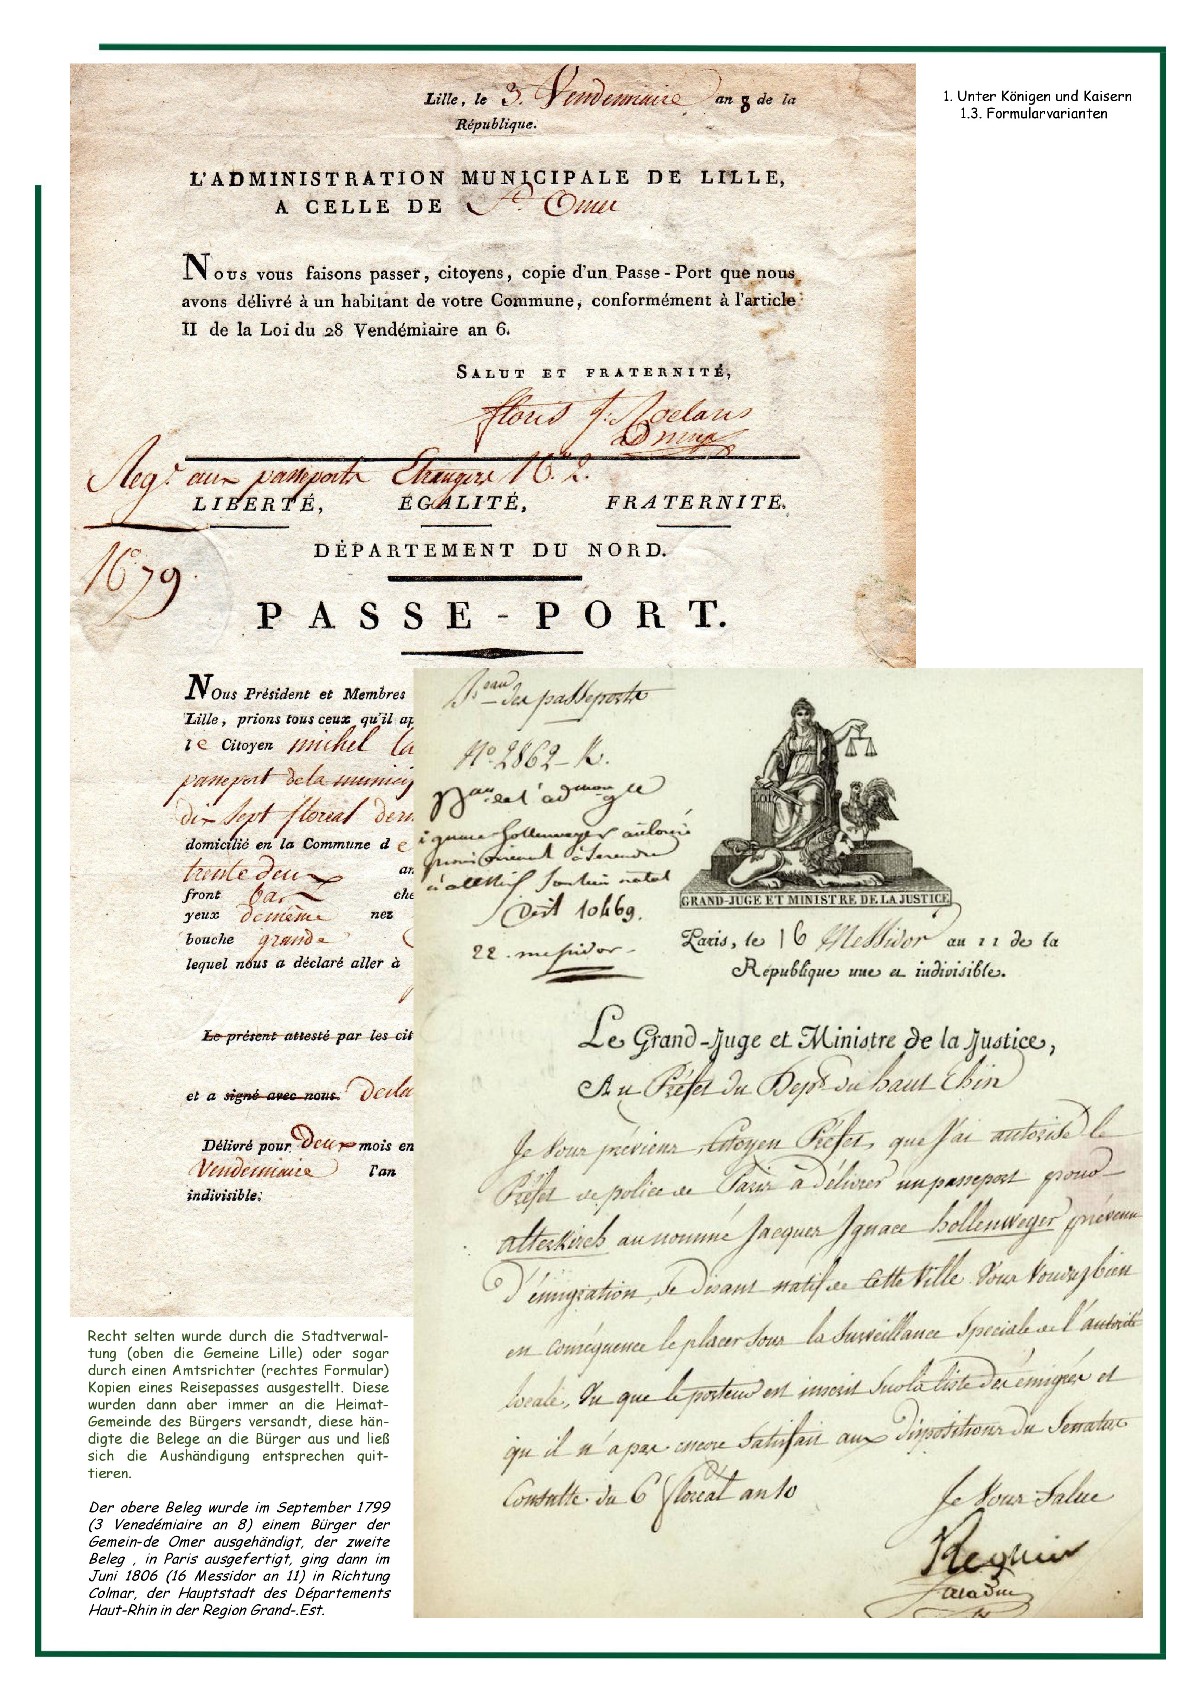 1. Unter Königen und Kaisern
1.3. Formularvarianten
Lille, le 3. Vendemiaire an 8 de la
République.
L'ADMINISTRATION MUNICIPALE DE LILLE,
A CELLE DE St. Omer
Nous vous faisons passer, citoyens, copie d'un Passe-Port que nous
avons délivré à un habitant de votre Commune, conformément à l'article
II de la Loi du 28 Vendémiaire an 6.
SALUT ET FRATERNITÉ,
Reg. aux passeports Etrangers N.° 2.
LIBERTÉ, ÉGALITÉ, FRATERNITÉ.
DÉPARTEMENT DU NORD.
N° 79
PASSE-PORT.
Nous Président et Membres
Lille, prions tous ceux qu'il ap
le Citoyen michel la
passeport de la municip
dix sept floreal dern
domicilié en la Commune de
trente deux an
front bas che
yeux demême nez
bouche grande
lequel nous a déclaré aller à
Le présent attesté par les cit
et a signé avec nous. decla
Délivré pour Deux mois en
Vendemiaire l'an
indivisible;
Beau des passeports
N° 2862-K.
ignace hollenweger autorisé
à se rendre
natal
Dest 10469.
22. messidor
Loi
GRAND-JUGE ET MINISTRE DE LA JUSTICE
Paris, le 16 Messidor an 11 de la
République une et indivisible.
Le Grand-Juge et Ministre de la Justice,
Au Préfet du Dept. du haut Rhin
Je vous préviens, Citoyen Préfet, que j'ai autorisé le
Préfet de police de Paris à délivrer un passeport pour
altkirch au nommé Jacques Ignace hollenweger prévenu
d'émigration, se disant natif de cette ville. Vous voudrez bien
en conséquence le placer sous la surveillance spéciale de l'autorité
locale, vu que le porteur est inscrit sur la liste des émigrés et
qu'il n'a pas encore satisfait aux dispositions du Senatus
Consulte du 6 floréal an 10
Je vous salue
Regnier
Recht selten wurde durch die Stadtverwal-
tung (oben die Gemeine Lille) oder sogar
durch einen Amtsrichter (rechtes Formular)
Kopien eines Reisepasses ausgestellt. Diese
wurden dann aber immer an die Heimat-
Gemeinde des Bürgers versandt, diese hän-
digte die Belege an die Bürger aus und ließ
sich die Aushändigung entsprechen quit-
tieren.
Der obere Beleg wurde im September 1799
(3 Venedémiaire an 8) einem Bürger der
Gemein-de Omer ausgehändigt, der zweite
Beleg , in Paris ausgefertigt, ging dann im
Juni 1806 (16 Messidor an 11) in Richtung
Colmar, der Hauptstadt des Départements
Haut-Rhin in der Region Grand-.Est.